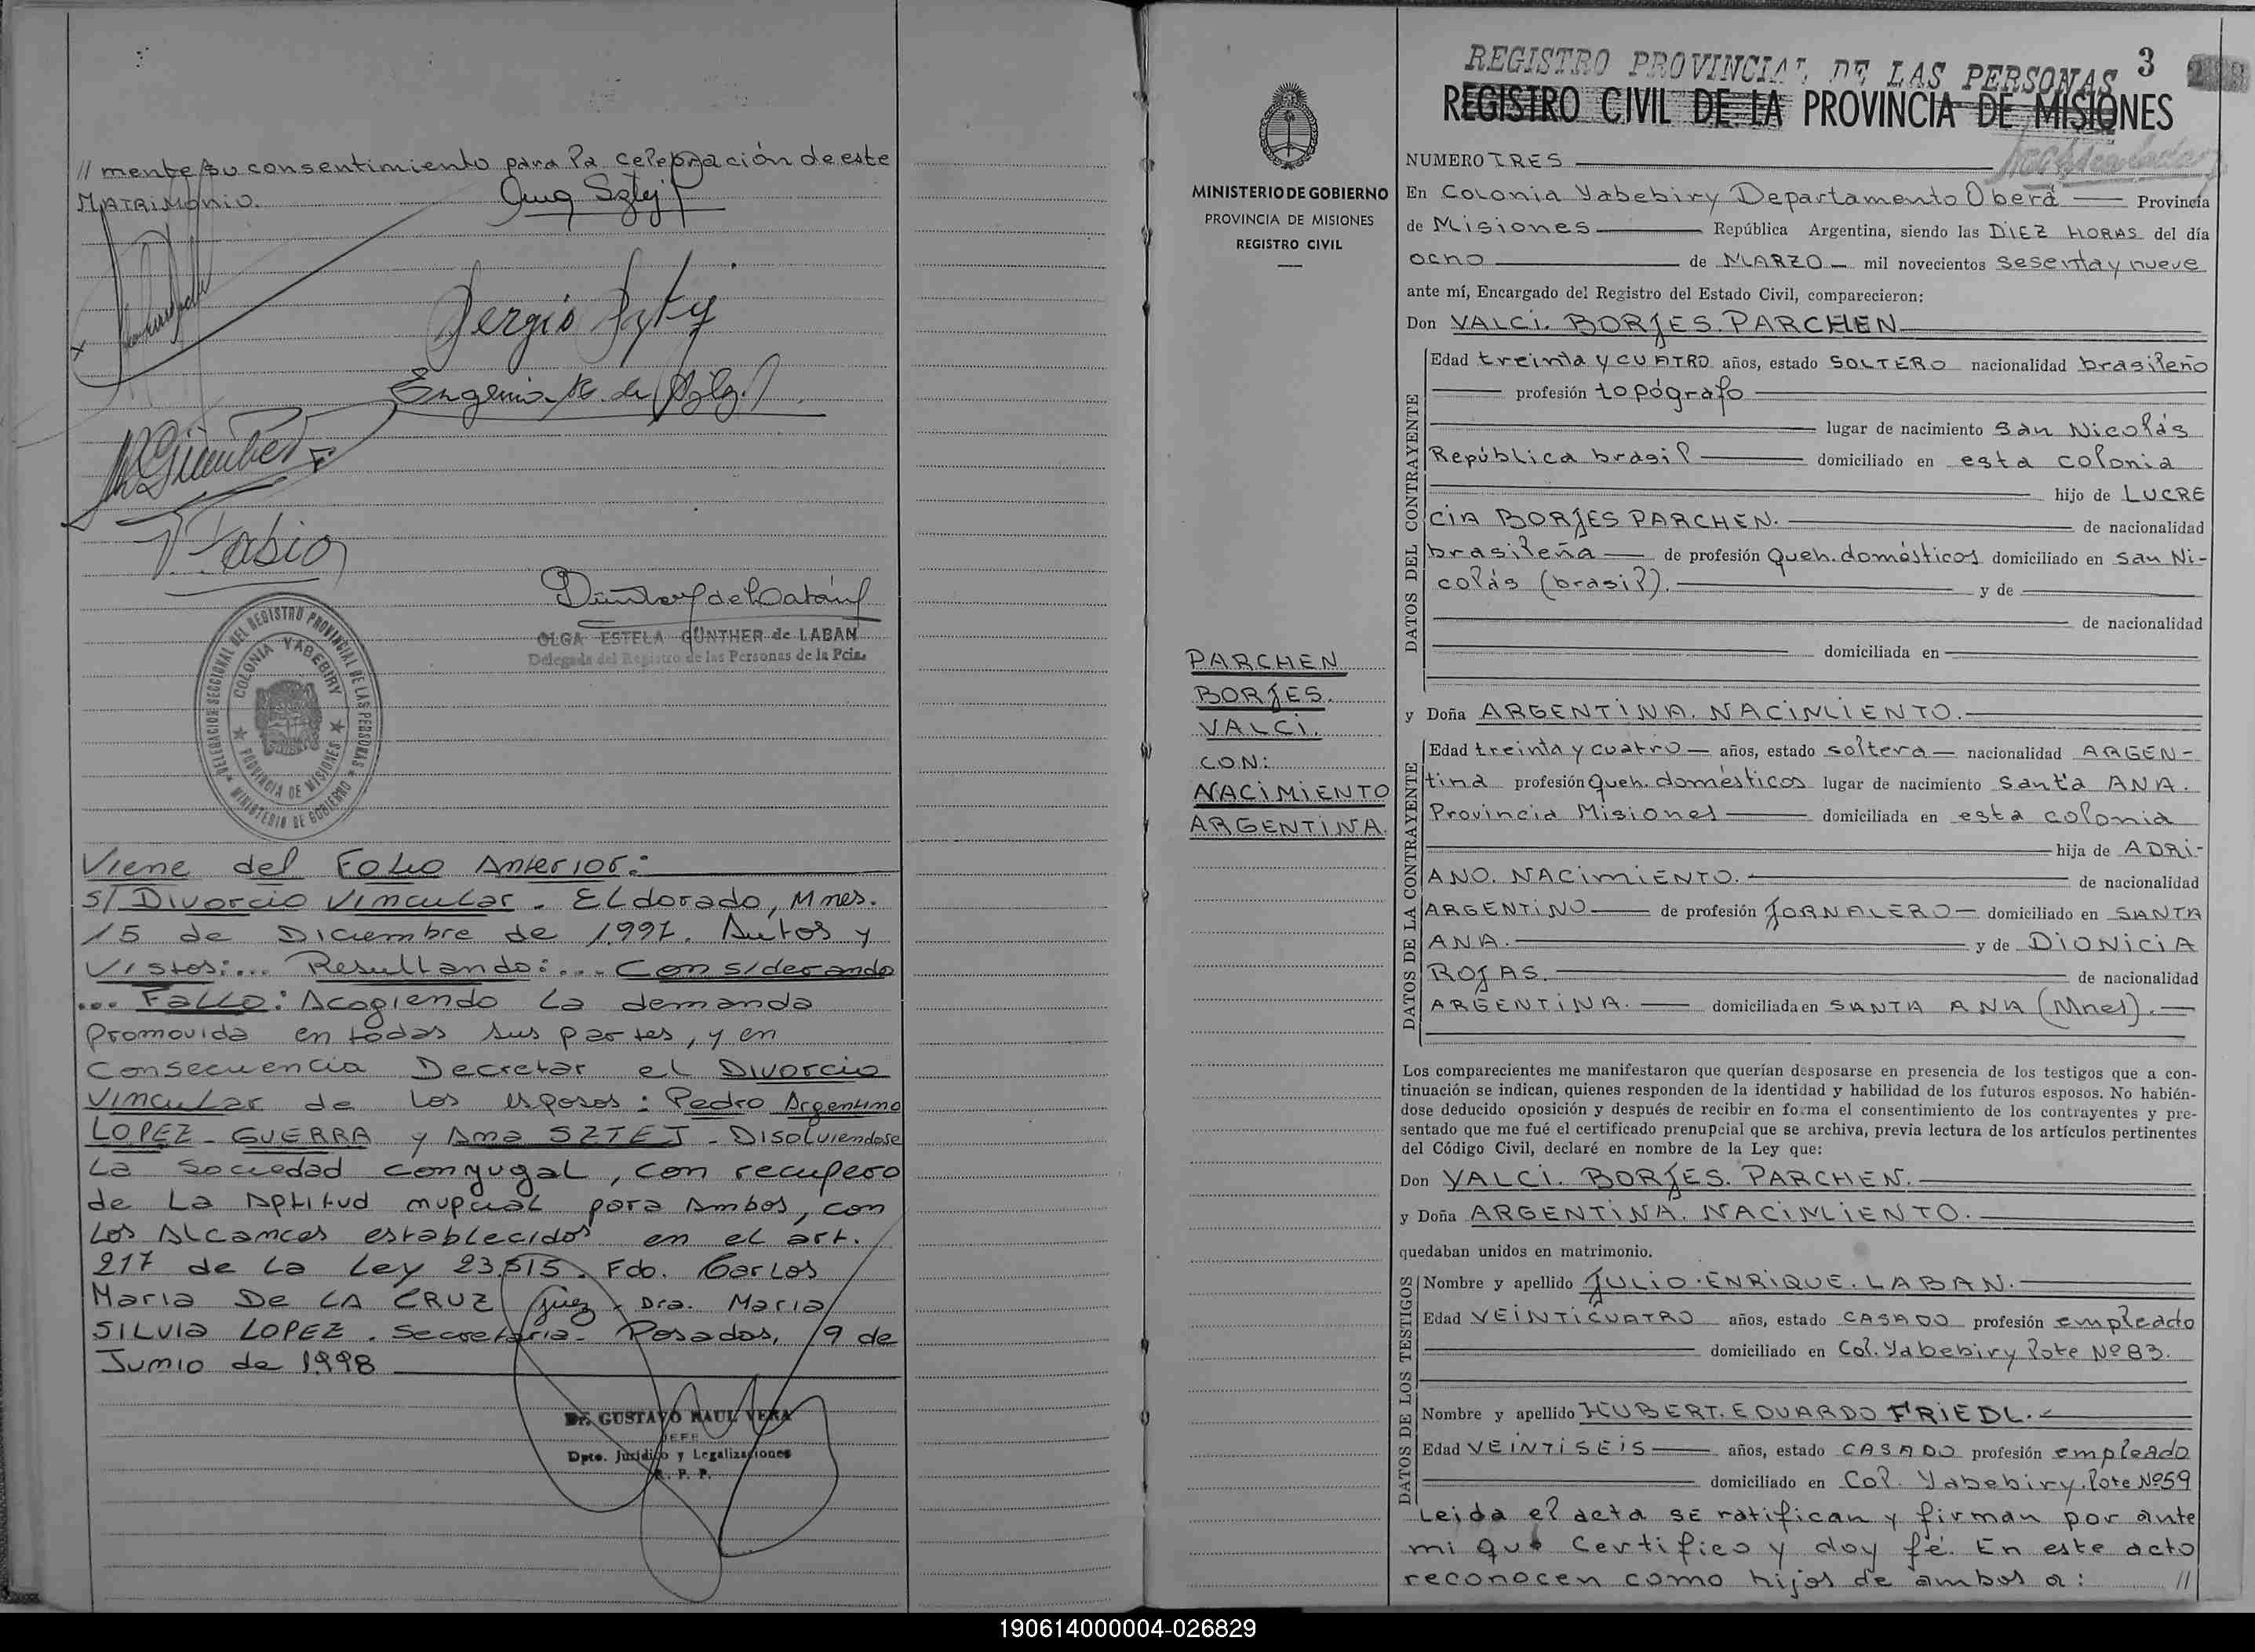 // mente su consentimiento para la celebración de este
MATRIMONIO.
Ana Sztej
Sergio
Eugenia K. de
OLGA ESTELA GÜNTHER de LABAN
Delegada del Registro de las Personas de la Pcia.
DELEGACION SECCIONAL DEL REGISTRO PROVINCIAL DE LAS PERSONAS
COLONIA YABEBIRY
PROVINCIA DE MISIONES
MINISTERIO DE GOBIERNO
Viene del Folio Anterior:
S/ Divorcio Vincular. ELdorado, Mnes.
15 de Diciembre de 1997. Autos y
Vistos:... Resultando:... Considerando
... Fallo: Acogiendo la demanda
promovida en todas sus partes, y en
Consecuencia Decretar el Divorcio
Vincular de los esposos: Pedro Argentino
LOPEZ-GUERRA y Ana SZTEJ - Disolviendose
La Sociedad conyugal, con recupero
de La Aptitud nupcial para Ambos, con
Los Alcances establecidos en el art.
217 de La Ley 23.515. Fdo. Carlos
Maria De LA CRUZ Juez. Dra. Maria
SILVIA LOPEZ. Secretaria. Posadas, 19 de
Junio de 1998
Dr. GUSTAVO RAUL VERA
JEFE
Dpto. Jurídico y Legalizaciones
R. P. P.
REGISTRO PROVINCIAL DE LAS PERSONAS
3
REGISTRO CIVIL DE LA PROVINCIA DE MISIONES
MINISTERIO DE GOBIERNO
PROVINCIA DE MISIONES
REGISTRO CIVIL
PARCHEN
BORJES.
VALCI.
CON:
NACIMIENTO
ARGENTINA.
NUMERO TRES
En Colonia Yabebiry Departamento Oberá Provincia
de Misiones República Argentina, siendo las DIEZ HORAS del día
ocho de MARZO mil novecientos sesenta y nueve
ante mí, Encargado del Registro del Estado Civil, comparecieron:
Don VALCI. BORJES. PARCHEN
DATOS DEL CONTRAYENTE
Edad treinta y CUATRO años, estado SOLTERO nacionalidad brasileño
profesión topógrafo
lugar de nacimiento San Nicolás
República brasil domiciliado en esta colonia
hijo de LUCRE
CIA BORJES PARCHEN. de nacionalidad
brasileña de profesión Queh. domésticos domiciliado en San Ni-
colás (brasil). y de
de nacionalidad
domiciliada en
y Doña ARGENTINA. NACIMIENTO.
DATOS DE LA CONTRAYENTE
Edad treinta y cuatro años, estado soltera nacionalidad ARGEN-
tina profesión Queh. domésticos lugar de nacimiento Santa ANA.
Provincia Misiones domiciliada en esta colonia
hija de ADRI-
ANO. NACIMIENTO. de nacionalidad
ARGENTINO de profesión JORNALERO domiciliado en SANTA
ANA. y de DIONICIA
ROJAS. de nacionalidad
ARGENTINA. domiciliada en SANTA ANA (Mnes).
Los comparecientes me manifestaron que querían desposarse en presencia de los testigos que a con-
tinuación se indican, quienes responden de la identidad y habilidad de los futuros esposos. No habién-
dose deducido oposición y después de recibir en forma el consentimiento de los contrayentes y pre-
sentado que me fué el certificado prenupcial que se archiva, previa lectura de los artículos pertinentes
del Código Civil, declaré en nombre de la Ley que:
Don VALCI. BORJES. PARCHEN.
y Doña ARGENTINA. NACIMIENTO.
quedaban unidos en matrimonio.
DATOS DE LOS TESTIGOS
Nombre y apellido JULIO. ENRIQUE. LABAN.
Edad VEINTICUATRO años, estado CASADO profesión empleado
domiciliado en Col. Yabebiry lote Nº 83.
Nombre y apellido HUBERT. EDUARDO FRIEDL.
Edad VEINTISEIS años, estado CASADO profesión empleado
domiciliado en Col. Yabebiry. lote Nº 59
Leida el acta SE ratifican y firman por ante
mi que certifico y doy fé. En este acto
reconocen como hijos de ambos a: //
190614000004-026829